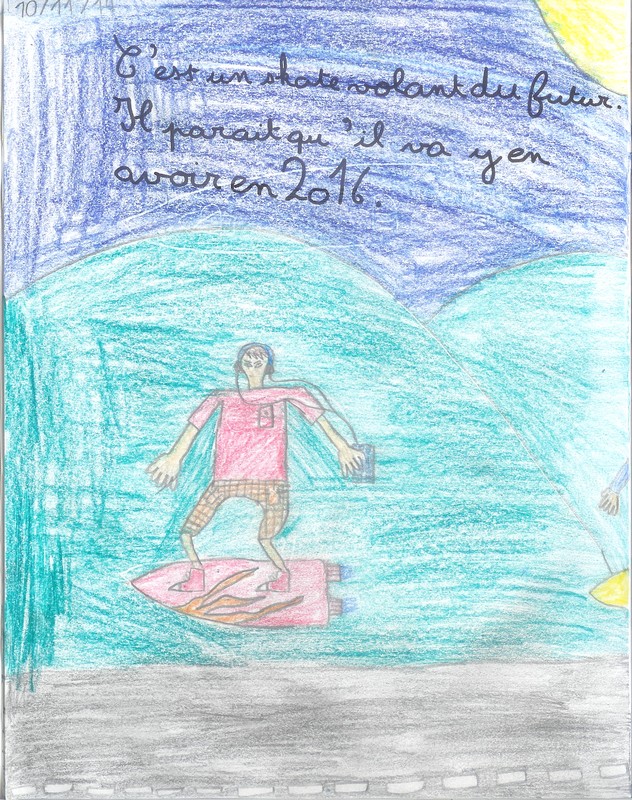 10/11/14
C'est un skate volant du futur.
Il parait qu'il va y en
avoir en 2016.